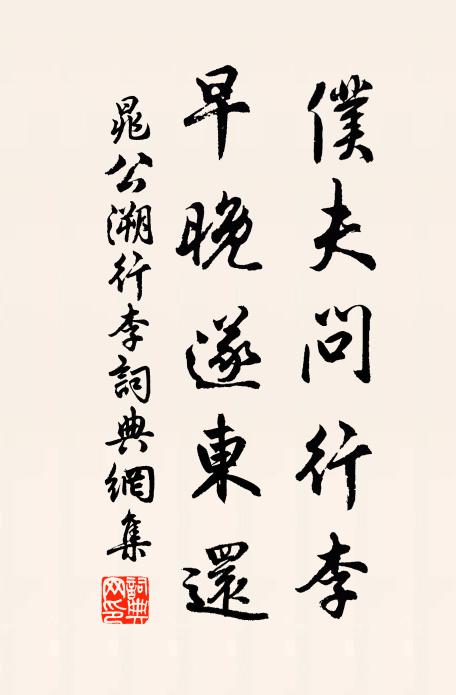 僕夫問行李
早晚遂東還
晁公溯行李詞典網集
詞典網印